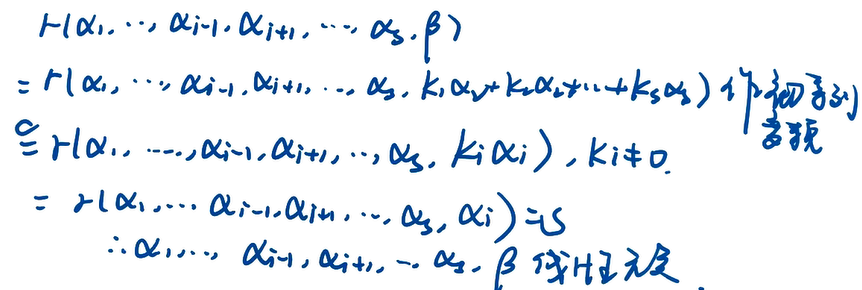 r(α₁, ⋯, αᵢ₋₁, αᵢ₊₁, ⋯, αₛ, β)
= r(α₁, ⋯, αᵢ₋₁, αᵢ₊₁, ⋯, αₛ, k₁α₁+k₂α₂+⋯+kₛαₛ) 作初等列
变换
= r(α₁, ⋯, αᵢ₋₁, αᵢ₊₁, ⋯, αₛ, kᵢαᵢ), kᵢ≠0.
= r(α₁, ⋯ αᵢ₋₁, αᵢ₊₁, ⋯, αₛ, αᵢ) = s
∴ α₁, ⋯, αᵢ₋₁, αᵢ₊₁, ⋯ αₛ, β 线性无关.